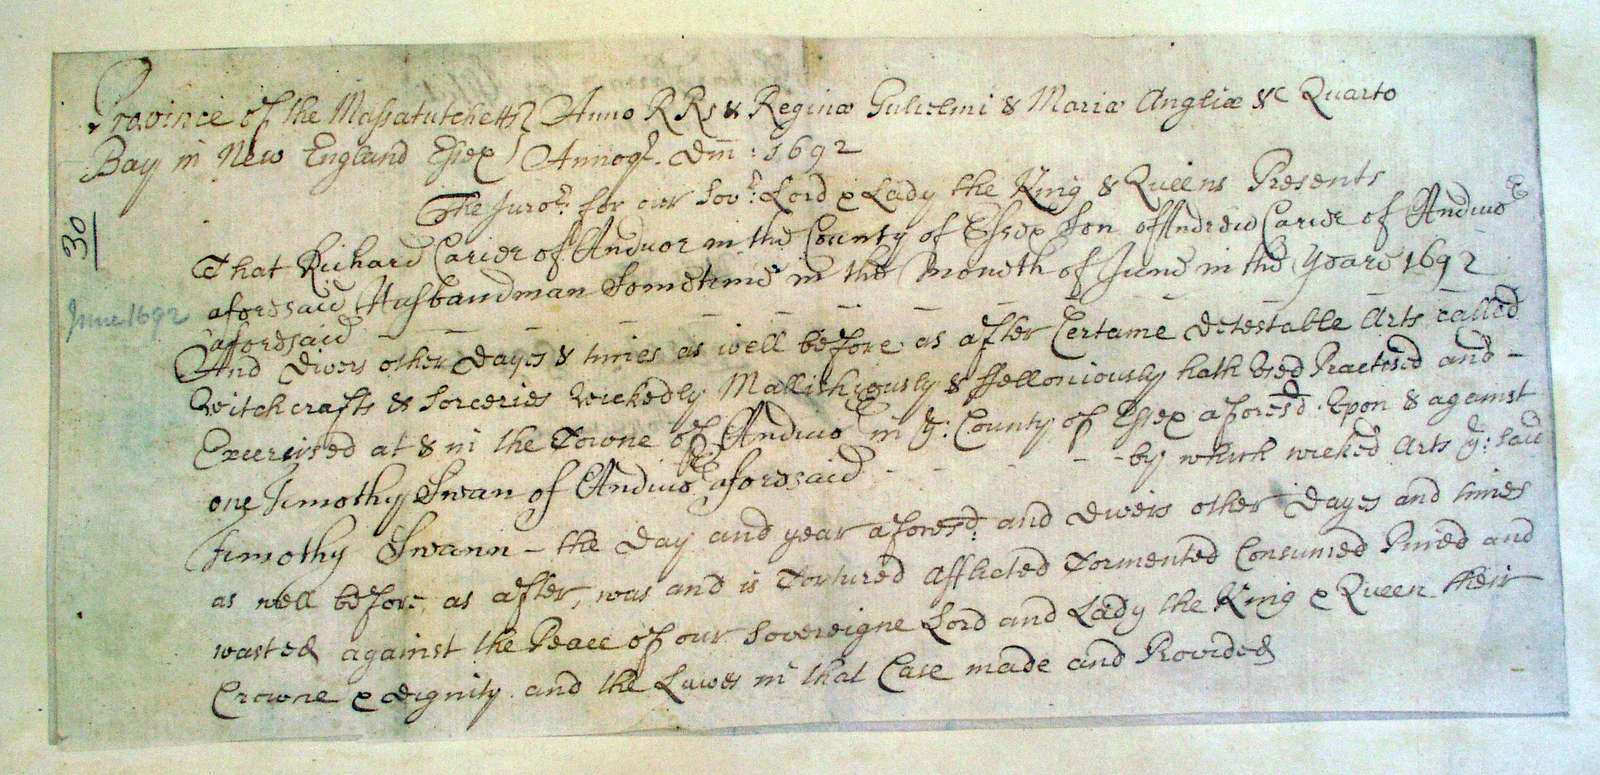 Province of the Massatutchetts Anno RRs & Reginæ Gulielmi & Mariæ Angliæ &c Quarto
Bay in New England Essex Annoqe. Dm: 1692
The Juror: for our Sovr. Lord & Lady the King & Queens Presents
That Richard Carier of Andivor in the County of Essex Son of Andrew Carier of Andivor
aforesaid Husbandman Sometime in the Moneth of June in the Yeare 1692
aforesaid
And Divers other Dayes & times as well before as after Certaine detestable Arts called
Witchcrafts & Sorceries Wickedly Mallishiously & ffelloniously hath Used Practised and -
Exercised at & in the Towne of Andivor in ye: County of Essex aforesd. Upon & against
one Timothy Swan of Andivor aforesaid - - - - - by which wicked Arts ye: said
Timothy Swann - the Day and year aforesd: and Divers other Dayes and times
as well before, as after, was and is Tortured Afflicted Tormented Consumed Pined and
wasted against the Peace of our Sovereigne Lord and Lady the King & Queen their
Crowne & dignity and the Lawes in that Case made and Provided
30
June 1692